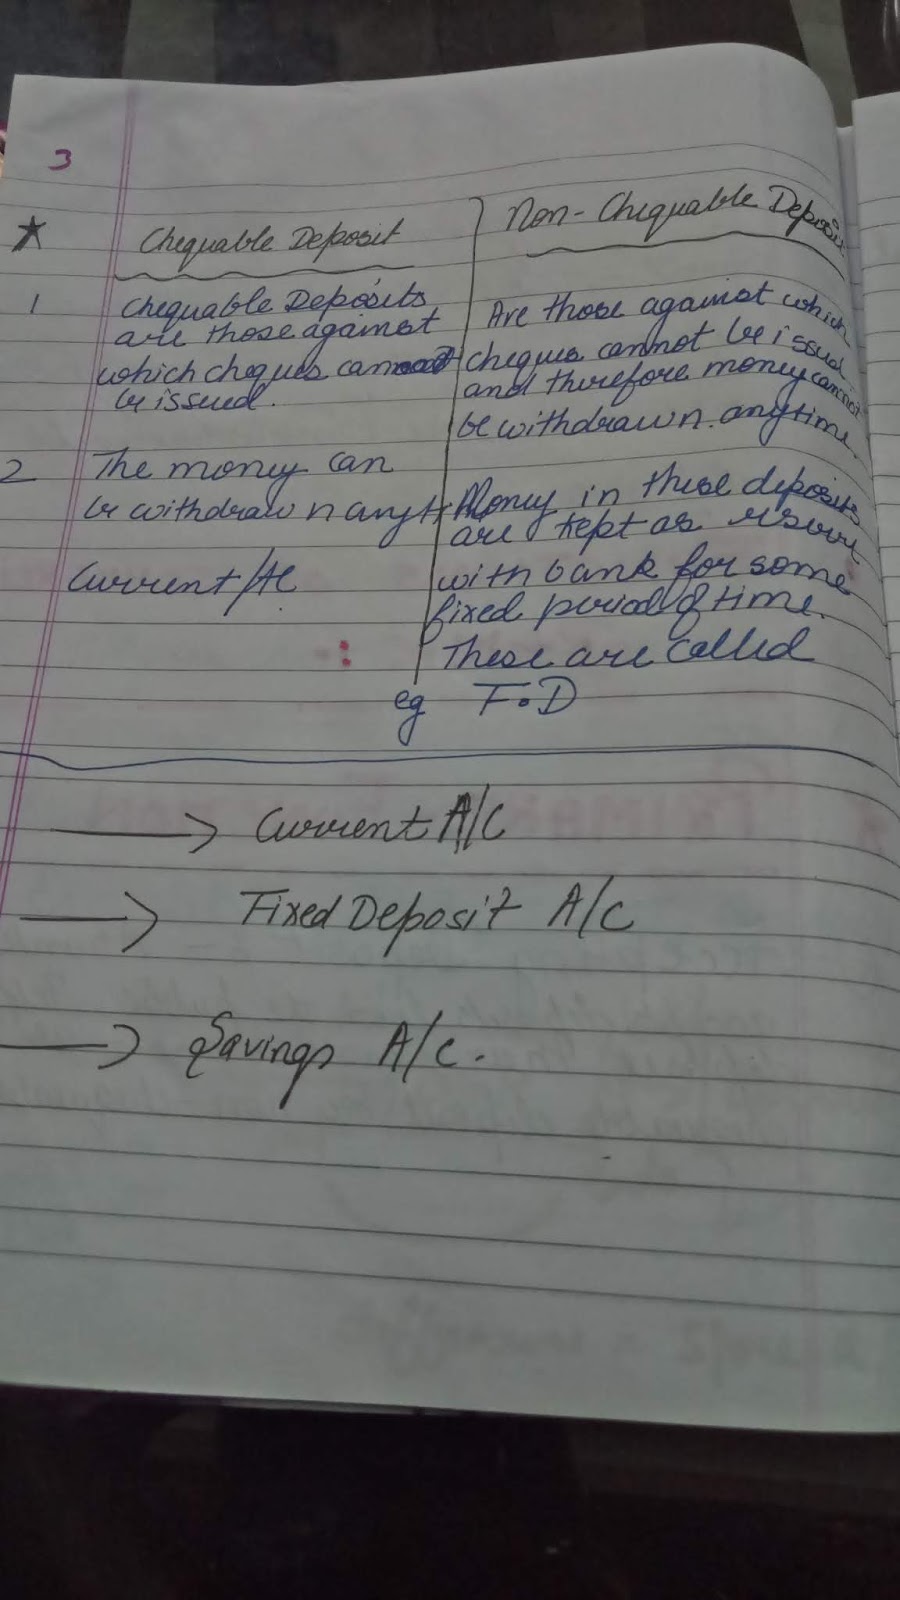 3
★ Chequable Deposit
Non-Chequable Deposit
1 Chequable Deposits
are those against
which cheques can
be issued.
2 The money can
be withdrawn anyt
Current A/c
Are those against which
cheques cannot be issued
and therefore money cannot
be withdrawn. anytime.
Money in these deposits
are kept as
with bank for some
fixed period of time.
These are called
eg F.D
→ Current A/C
→ Fixed Deposit A/C
→ Savings A/c.